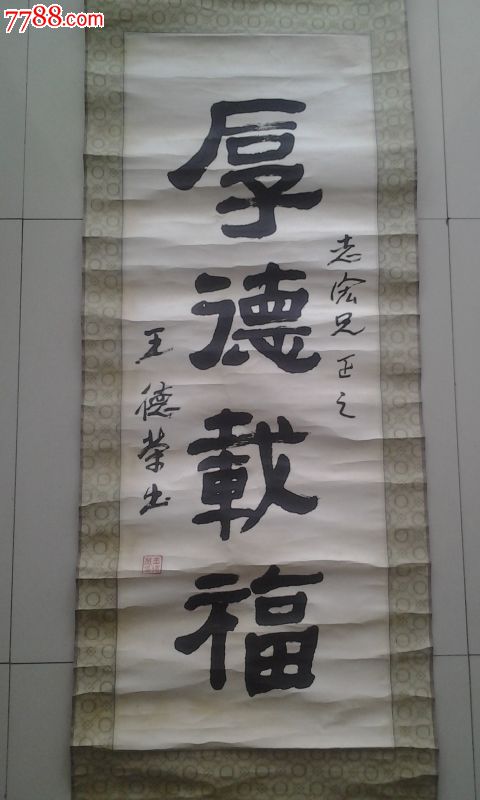 7788.com
厚德載福
志宏兄正之
王德荣书